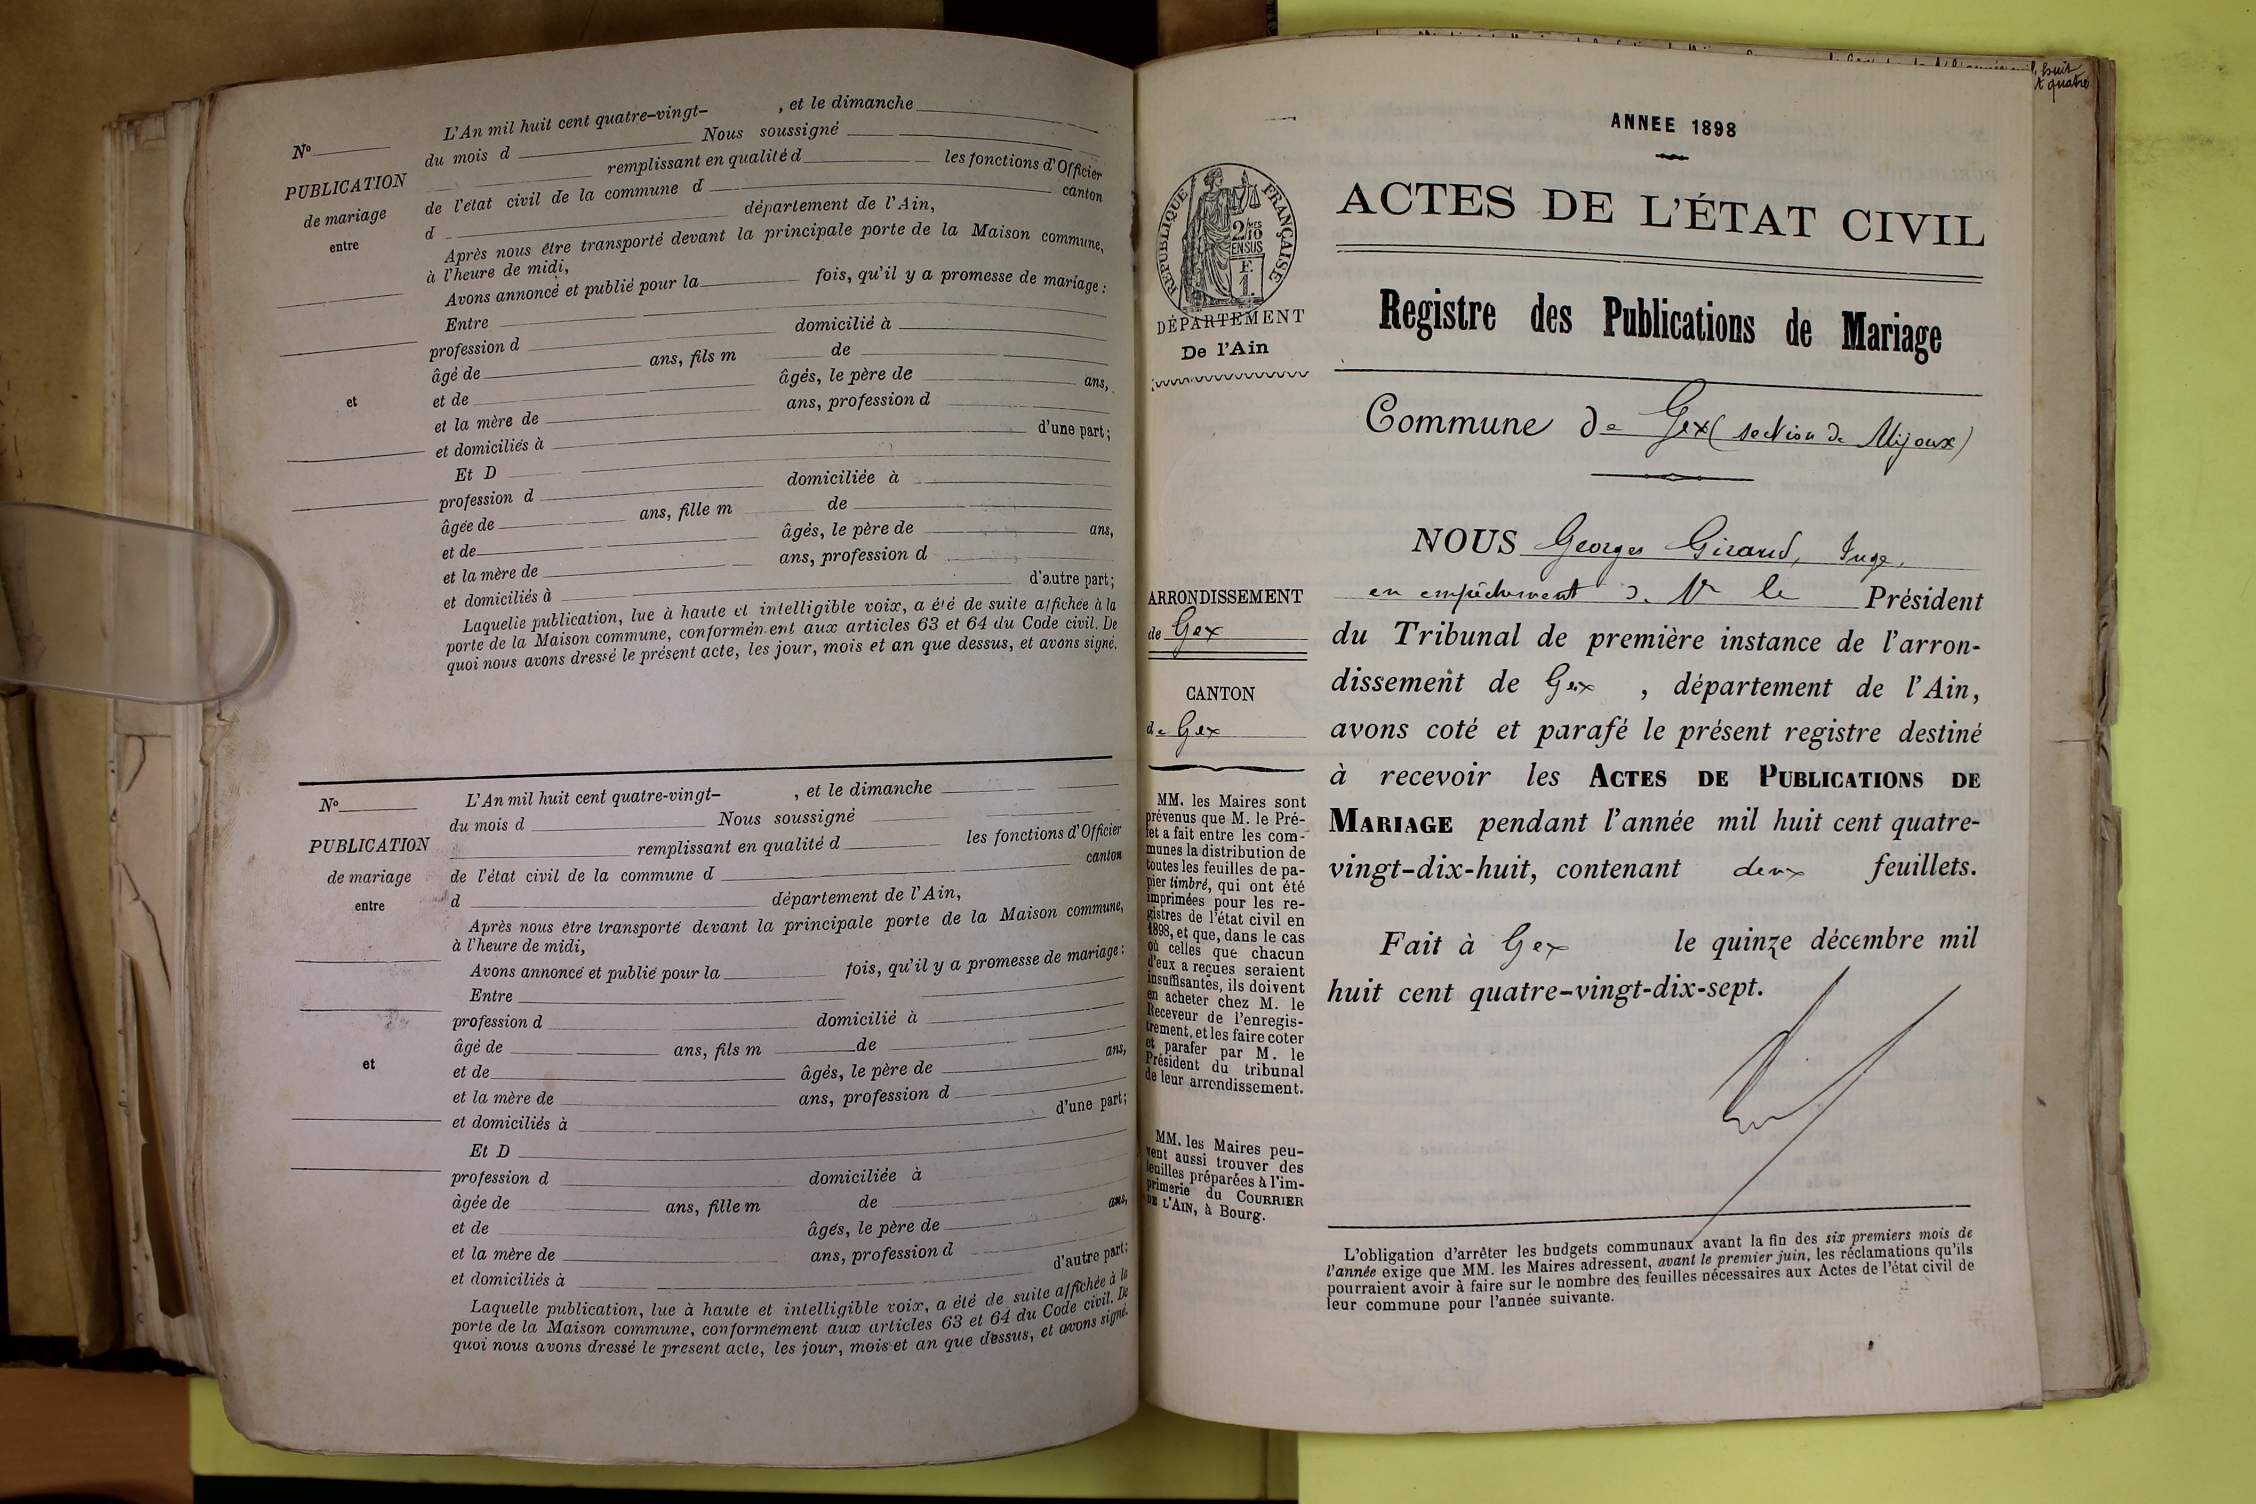 N°
PUBLICATION
de mariage
entre
et
L'An mil huit cent quatre-vingt- , et le dimanche
du mois d Nous soussigné
remplissant en qualité d les fonctions d'Officier
de l'état civil de la commune d canton
d département de l'Ain,
Après nous être transporté devant la principale porte de la Maison commune,
à l'heure de midi,
Avons annoncé et publié pour la fois, qu'il y a promesse de mariage :
Entre
profession d domicilié à
âgé de ans, fils m de
et de âgés, le père de ans,
et la mère de ans, profession d
et domiciliés à d'une part;
Et D
profession d domiciliée à
âgée de ans, fille m de
et de âgés, le père de ans,
et la mère de ans, profession d
et domiciliés à d'autre part;
Laquelle publication, lue à haute et intelligible voix, a été de suite affichée à la
porte de la Maison commune, conformément aux articles 63 et 64 du Code civil. De
quoi nous avons dressé le présent acte, les jour, mois et an que dessus, et avons signé.
N°
PUBLICATION
de mariage
entre
et
L'An mil huit cent quatre-vingt- , et le dimanche
du mois d Nous soussigné
remplissant en qualité d les fonctions d'Officier
de l'état civil de la commune d canton
d département de l'Ain,
Après nous être transporté devant la principale porte de la Maison commune,
à l'heure de midi,
Avons annoncé et publié pour la fois, qu'il y a promesse de mariage :
Entre
profession d domicilié à
âgé de ans, fils m de
et de âgés, le père de ans,
et la mère de ans, profession d
et domiciliés à d'une part;
Et D
profession d domiciliée à
àgée de ans, fille m de
et de âgés, le père de ans,
et la mère de ans, profession d
et domiciliés à d'autre part;
Laquelle publication, lue à haute et intelligible voix, a été de suite affichée à la
porte de la Maison commune, conformément aux articles 63 et 64 du Code civil. De
quoi nous avons dressé le present acte, les jour, mois et an que dessus, et avons signé.
huit
quatre
RÉPUBLIQUE FRANÇAISE
2/10
EN SUS
F.
1.
DÉPARTEMENT
De l'Ain
ARRONDISSEMENT
de Gex
CANTON
de Gex
MM. les Maires sont
prévenus que M. le Pré-
fet a fait entre les com-
munes la distribution de
toutes les feuilles de pa-
pier timbré, qui ont été
imprimées pour les re-
gistres de l'état civil en
1898, et que, dans le cas
où celles que chacun
d'eux a reçues seraient
insuffisantes, ils doivent
en acheter chez M. le
Receveur de l'enregis-
trement, et les faire coter
et parafer par M. le
Président du tribunal
de leur arrondissement.
MM. les Maires peu-
vent aussi trouver des
feuilles préparées à l'im-
primerie du COURRIER
DE L'AIN, à Bourg.
ANNEE 1898
ACTES DE L'ÉTAT CIVIL
Registre des Publications de Mariage
Commune de Gex (section de Mijoux)
NOUS Georges Girard, Juge,
en empêchement de Mr le Président
du Tribunal de première instance de l'arron-
dissement de Gex , département de l'Ain,
avons coté et parafé le présent registre destiné
à recevoir les ACTES DE PUBLICATIONS DE
MARIAGE pendant l'année mil huit cent quatre-
vingt-dix-huit, contenant deux feuillets.
Fait à Gex le quinze décembre mil
huit cent quatre-vingt-dix-sept.
L'obligation d'arrêter les budgets communaux avant la fin des six premiers mois de
l'année exige que MM. les Maires adressent, avant le premier juin, les réclamations qu'ils
pourraient avoir à faire sur le nombre des feuilles nécessaires aux Actes de l'état civil de
leur commune pour l'année suivante.